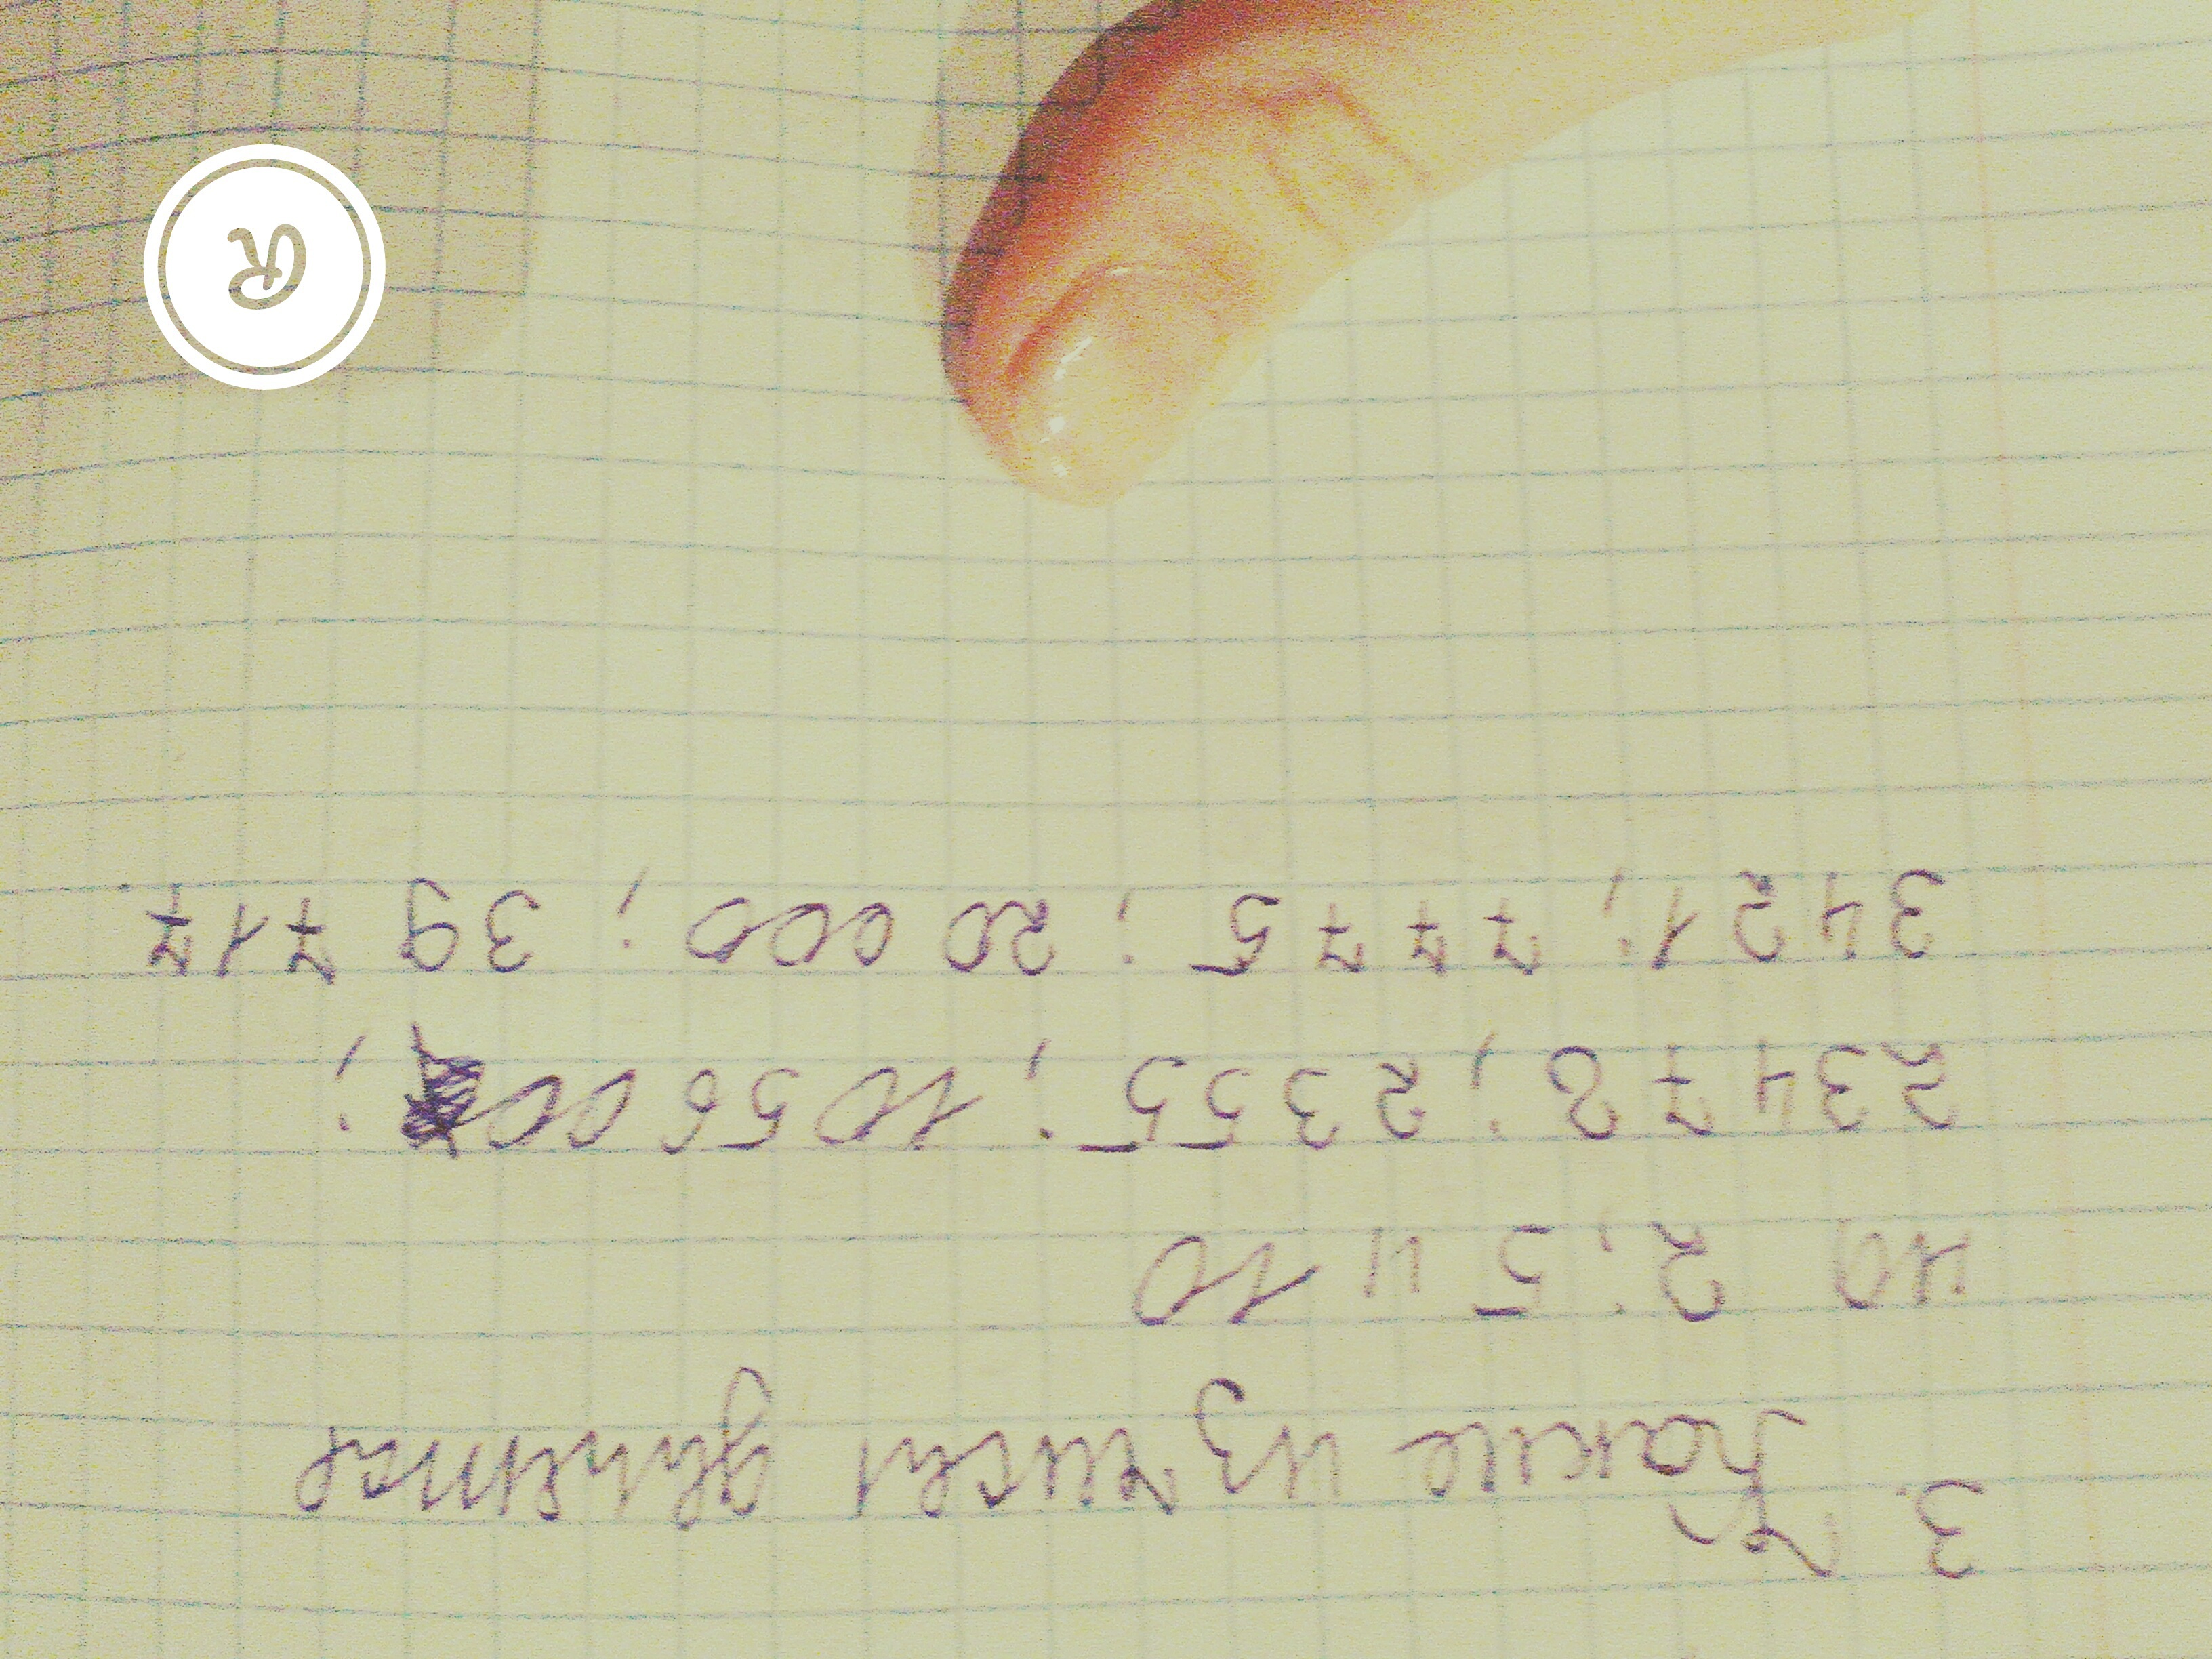 3. Какие из чисел делятся
на 2; 5 и 10
23478; 2355; 105600;
3421; 7775; 20 000; 39 717